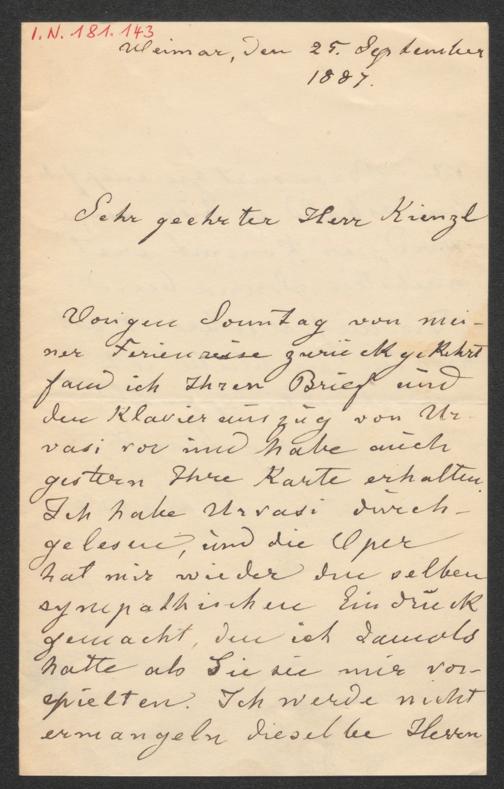 I.N. 181.143
Weimar, den 25. September
1887.
Sehr geehrter Herr Kienzl
Vorigen Sonntag von mei-
ner Ferienreise zurückgekehrt
fand ich Ihren Brief und
den Klavierauszug von Ur-
vasi vor und habe auch
gestern Ihre Karte erhalten.
Ich habe Urvasi durch-
gelesen, und die Oper
hat mir wieder den selben
sympathischen Eindruck
gemacht, den ich damals
hatte als Sie sie mir vor-
spielten. Ich werde nicht
ermangeln dieselbe Herrn